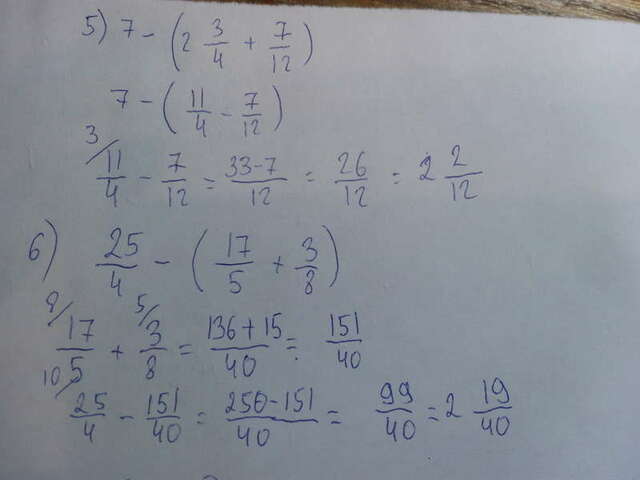 5) 7 - (2 3/4 + 7/12)
7 - (11/4 - 7/12)
3/ 11/4 - 7/12 = 33-7/12 = 26/12 = 2 2/12
6) 25/4 - (17/5 + 3/8)
8/ 17/5 + 5/ 3/8 = 136+15/40 = 151/40
10/ 25/4 - 151/40 = 250-151/40 = 99/40 = 2 19/40